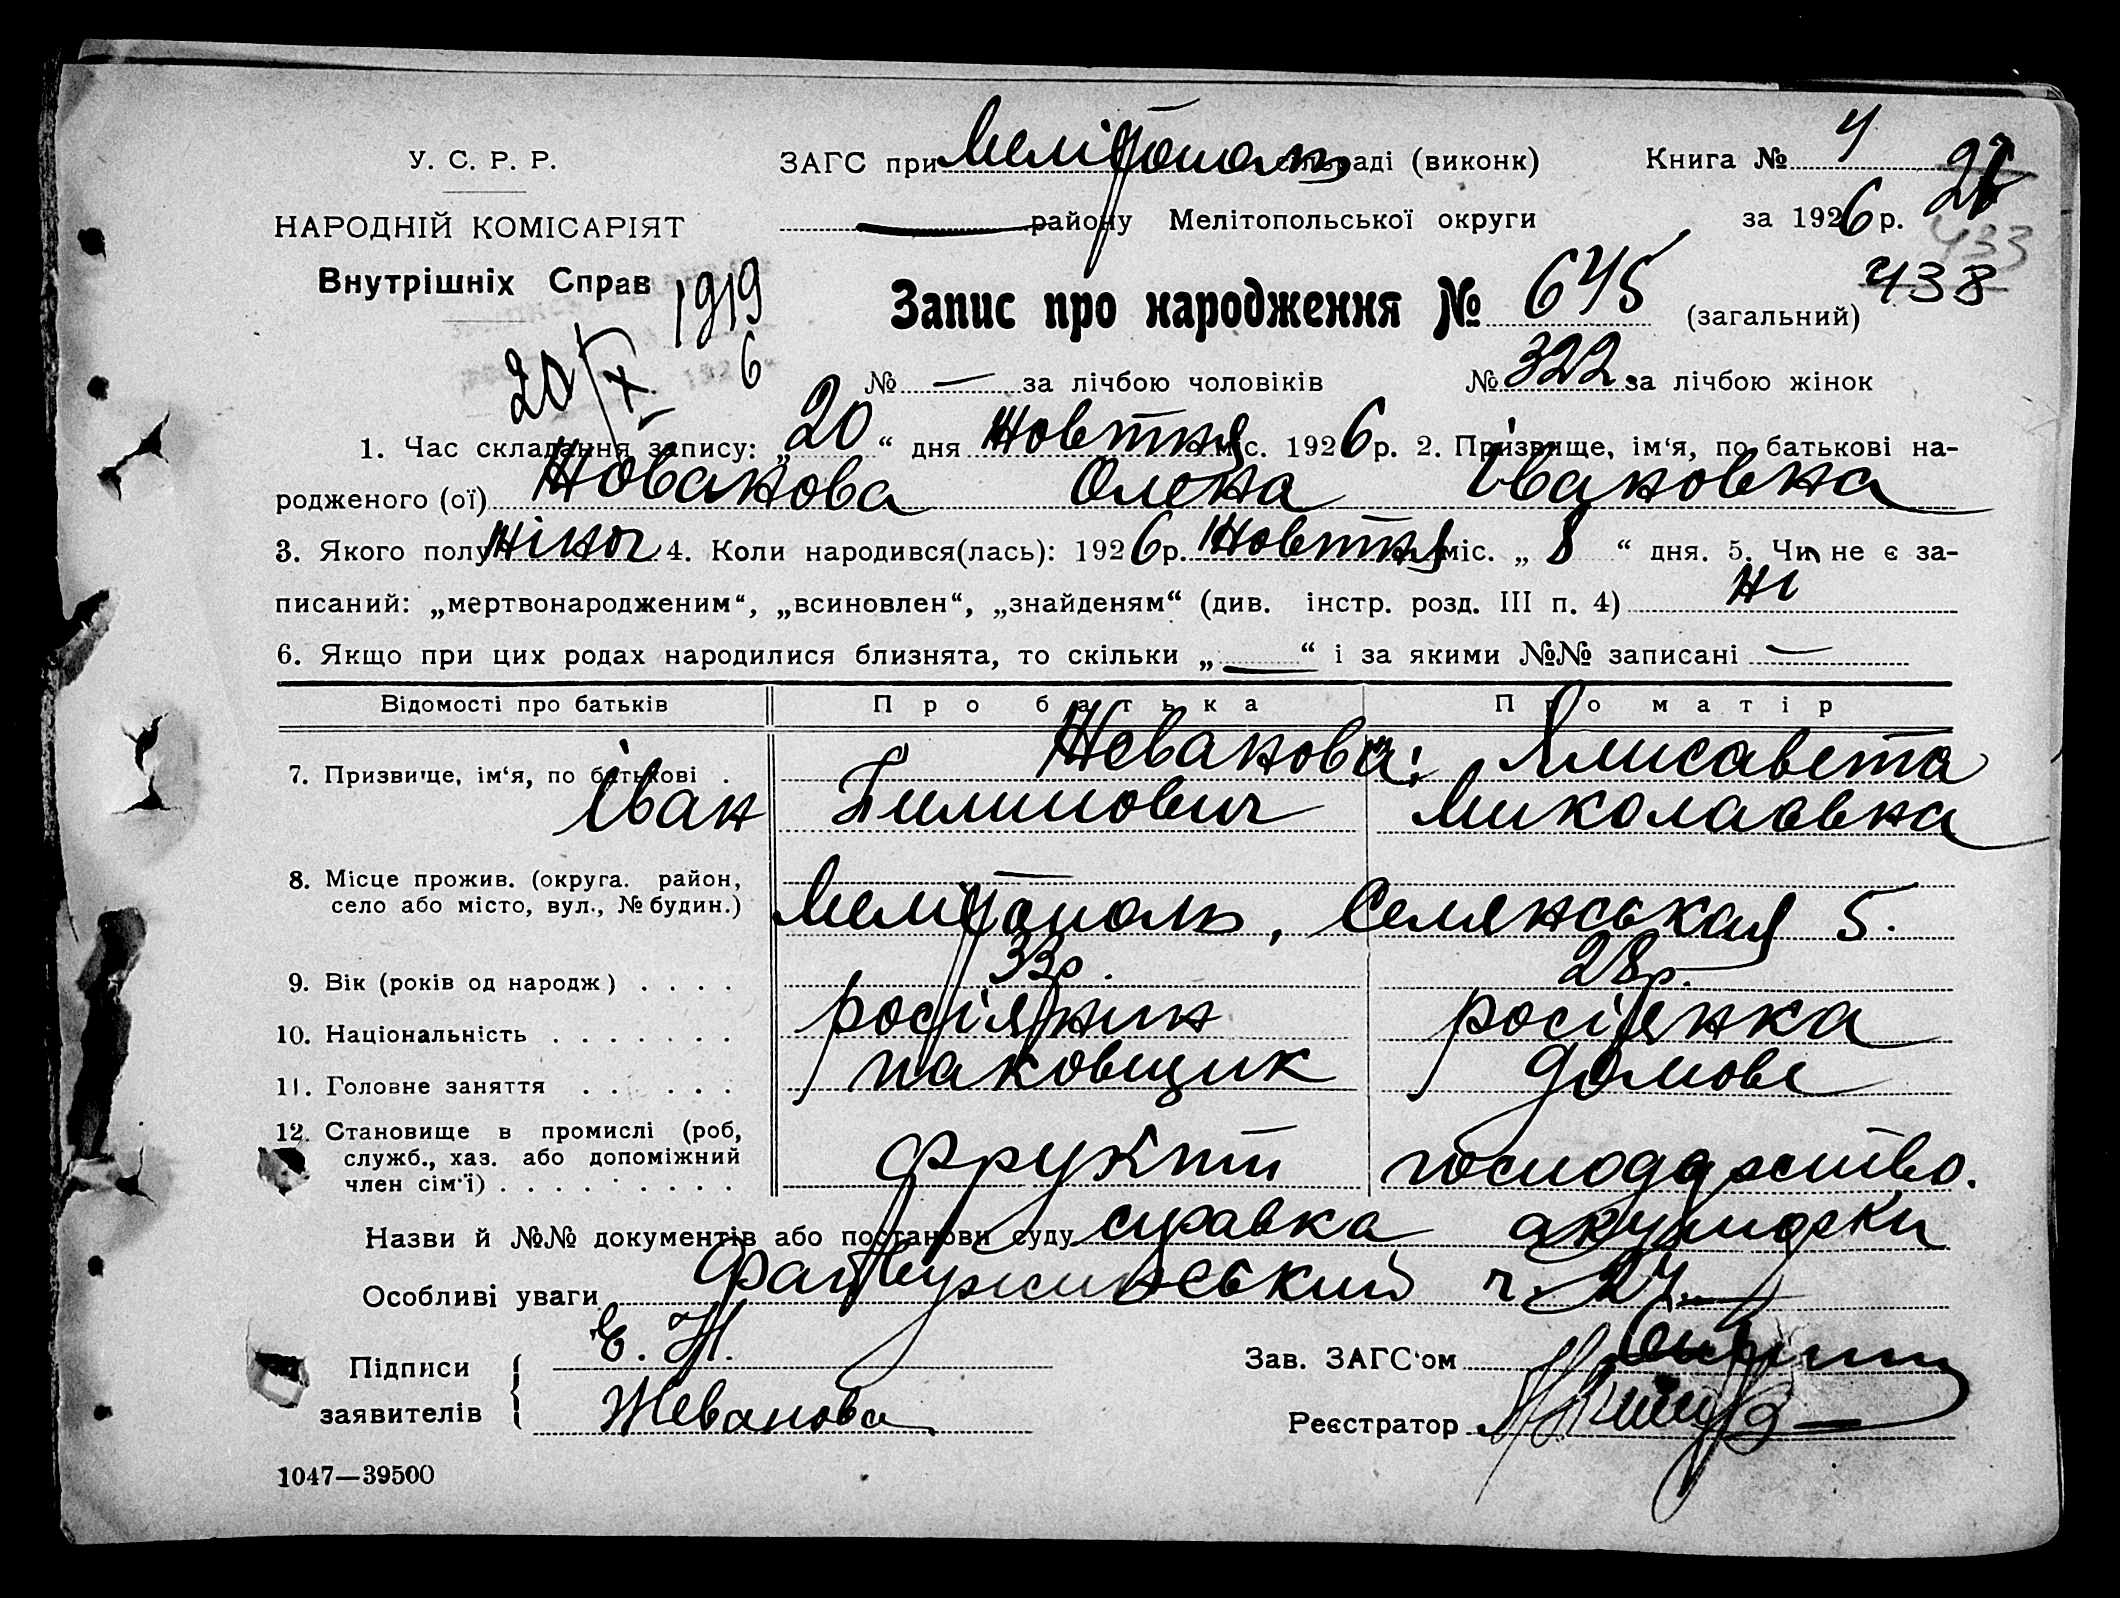 У. С. Р. Р.
НАРОДНІЙ КОМІСАРІЯТ
Внутрішніх Справ
ЗАГС при Мелітополь сільраді (виконк)
Книга № 4
району Мелітопольської округи
за 1926 р.
433
438
20/X 1919
6
Запис про народження № 645 (загальний)
№ — за лічбою чоловіків № 322 за лічбою жінок
1. Час складання запису: „20“ дня жовтня міс. 1926 р. 2. Призвище, ім‘я, по батькові на-
родженого (ої) Жованова Олена Івановна
3. Якого полу жіноч 4. Коли народився(лась): 1926 р. жовтня міс. „8“ дня. 5. Чи не є за-
писаний: „мертвонародженим“, „всиновлен“, „знайденям“ (див. інстр. розд. III п. 4) ні
6. Якщо при цих родах народилися близнята, то скільки „—“ і за якими №№ записані —
Відомості про батьків Про батька Про матір
7. Призвище, ім‘я, по батькові . Жеванови; Єлисавета
Іван Пилипович Миколаєвна
8. Місце прожив. (округа. район,
село або місто, вул., № будин.) Мелітополь, Селянськая 5.
9. Вік (років од народж) . . . . 33р. 28р.
10. Національність . . . . . . . росіянин росіянка
11. Головне заняття . . . . . . паковщик домове
12. Становище в промислі (роб,
служб., хаз. або допоміжний
член сім‘ї) . . . . . . . . . фрукти господарство.
Назви й №№ документів або постанови суду справка акушорки
Особливі уваги ч. 24.
Підписи
заявителів
Е. Ж.
Жеванова
Зав. ЗАГС‘ом
Реєстратор
1047—39500